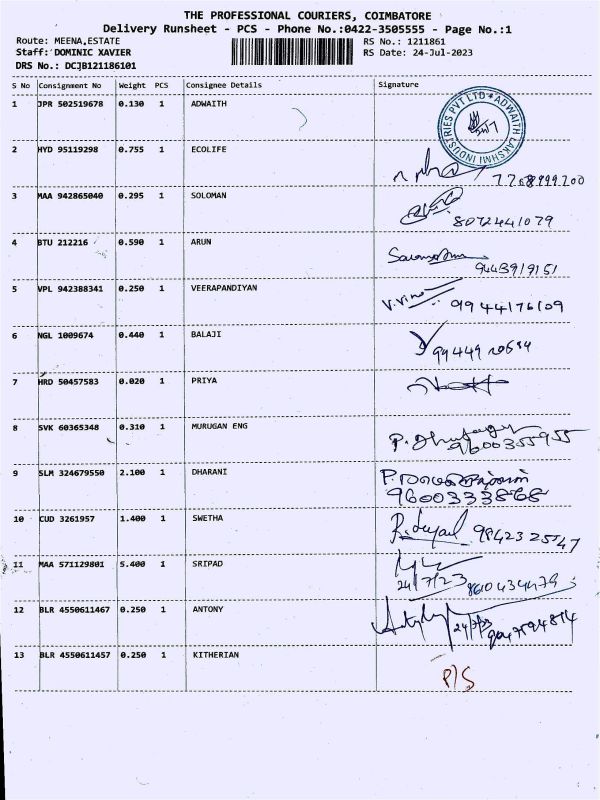 THE PROFESSIONAL COURIERS, COIMBATORE
Delivery Runsheet - PCS - Phone No.:0422-3505555 - Page No.:1
Route: MEENA,ESTATE RS No.: 1211861
Staff: DOMINIC XAVIER RS Date: 24-Jul-2023
DRS No.: DCJB121186101
S No Consignment No Weight PCS Consignee Details Signature
1 JPR 502519678 0.130 1 ADWAITH
ADWAITH LAKSHMI INDUSTRIES PVT LTD
2 HYD 95119298 0.755 1 ECOLIFE
3 MAA 942865040 0.295 1 SOLOMAN
8072441079
4 BTU 212216 0.590 1 ARUN
9443919151
5 VPL 942388341 0.250 1 VEERAPANDIYAN
V.Vino 9944176109
6 NGL 1009674 0.440 1 BALAJI
7 HRD 50457583 0.020 1 PRIYA
8 SVK 60365348 0.310 1 MURUGAN ENG
9600355955
9 SLM 324679550 2.100 1 DHARANI
9600333868
10 CUD 3261957 1.400 1 SWETHA
9842325547
11 MAA 571129801 5.400 1 SRIPAD
24/7/23 8610434479
12 BLR 4550611467 0.250 1 ANTONY
24/7/23
13 BLR 4550611457 0.250 1 KITHERIAN
P/S